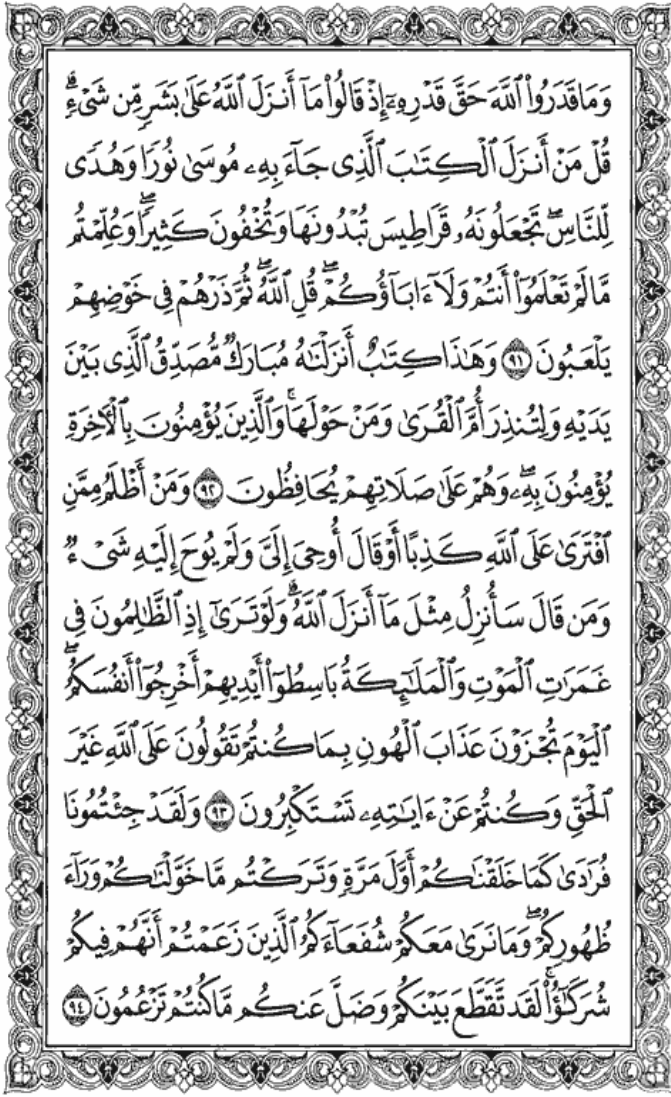 وَمَا قَدَرُوا۟ ٱللَّهَ حَقَّ قَدْرِهِۦٓ إِذْ قَالُوا۟ مَآ أَنزَلَ ٱللَّهُ عَلَىٰ بَشَرٍۢ مِّن شَىْءٍۢ ۗ
قُلْ مَنْ أَنزَلَ ٱلْكِتَٰبَ ٱلَّذِى جَآءَ بِهِۦ مُوسَىٰ نُورًۭا وَهُدًۭى
لِّلنَّاسِ ۖ تَجْعَلُونَهُۥ قَرَاطِيسَ تُبْدُونَهَا وَتُخْفُونَ كَثِيرًۭا ۖ وَعُلِّمْتُم
مَّا لَمْ تَعْلَمُوٓا۟ أَنتُمْ وَلَآ ءَابَآؤُكُمْ ۖ قُلِ ٱللَّهُ ۖ ثُمَّ ذَرْهُمْ فِى خَوْضِهِمْ
يَلْعَبُونَ ٩١ وَهَٰذَا كِتَٰبٌ أَنزَلْنَٰهُ مُبَارَكٌۭ مُّصَدِّقُ ٱلَّذِى بَيْنَ
يَدَيْهِ وَلِتُنذِرَ أُمَّ ٱلْقُرَىٰ وَمَنْ حَوْلَهَا ۚ وَٱلَّذِينَ يُؤْمِنُونَ بِٱلْءَاخِرَةِ
يُؤْمِنُونَ بِهِۦ ۖ وَهُمْ عَلَىٰ صَلَاتِهِمْ يُحَافِظُونَ ٩٢ وَمَنْ أَظْلَمُ مِمَّنِ
ٱفْتَرَىٰ عَلَى ٱللَّهِ كَذِبًا أَوْ قَالَ أُوحِىَ إِلَىَّ وَلَمْ يُوحَ إِلَيْهِ شَىْءٌۭ
وَمَن قَالَ سَأُنزِلُ مِثْلَ مَآ أَنزَلَ ٱللَّهُ ۗ وَلَوْ تَرَىٰٓ إِذِ ٱلظَّٰلِمُونَ فِى
غَمَرَٰتِ ٱلْمَوْتِ وَٱلْمَلَٰٓئِكَةُ بَاسِطُوٓا۟ أَيْدِيهِمْ أَخْرِجُوٓا۟ أَنفُسَكُمُ ۖ
ٱلْيَوْمَ تُجْزَوْنَ عَذَابَ ٱلْهُونِ بِمَا كُنتُمْ تَقُولُونَ عَلَى ٱللَّهِ غَيْرَ
ٱلْحَقِّ وَكُنتُمْ عَنْ ءَايَٰتِهِۦ تَسْتَكْبِرُونَ ٩٣ وَلَقَدْ جِئْتُمُونَا
فُرَٰدَىٰ كَمَا خَلَقْنَٰكُمْ أَوَّلَ مَرَّةٍۢ وَتَرَكْتُم مَّا خَوَّلْنَٰكُمْ وَرَآءَ
ظُهُورِكُمْ ۖ وَمَا نَرَىٰ مَعَكُمْ شُفَعَآءَكُمُ ٱلَّذِينَ زَعَمْتُمْ أَنَّهُمْ فِيكُمْ
شُرَكَٰٓؤُا۟ ۚ لَقَد تَّقَطَّعَ بَيْنَكُمْ وَضَلَّ عَنكُم مَّا كُنتُمْ تَزْعُمُونَ ٩٤